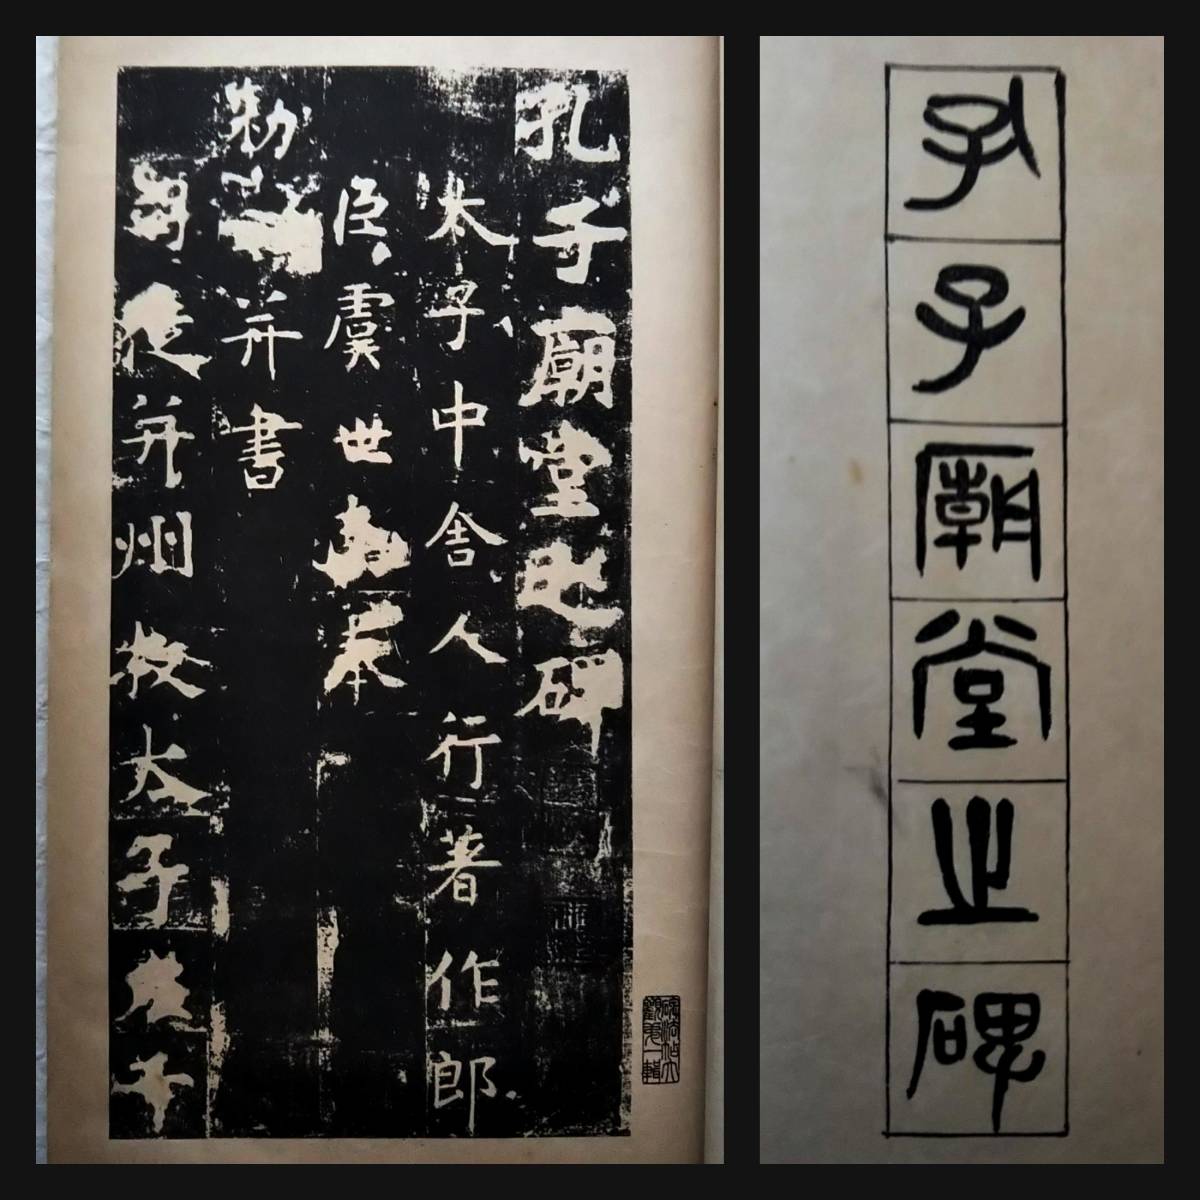 孔子廟堂之碑
太子中舍人行著作郎
臣虞世南奉
勅并書
司徒并州牧太子左千
孔子廟堂之碑